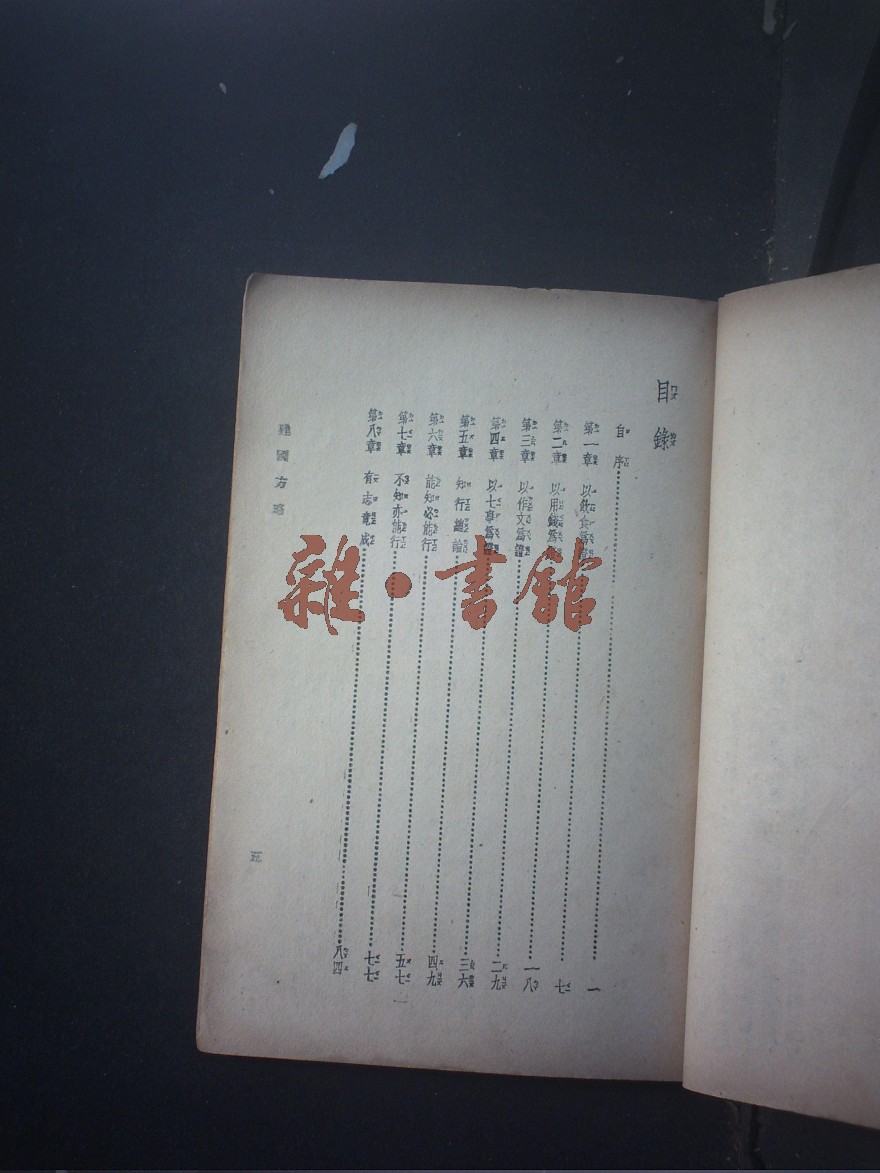 目錄
自序……一
第一章 以飲食爲證……七
第二章 以用錢爲證……一八
第三章 以作文爲證……二九
第四章 以七事爲證……三六
第五章 知行總論……四九
第六章 能知必能行……五七
第七章 不知亦能行……七七
第八章 有志竟成……八四
建國方略
雜·書館